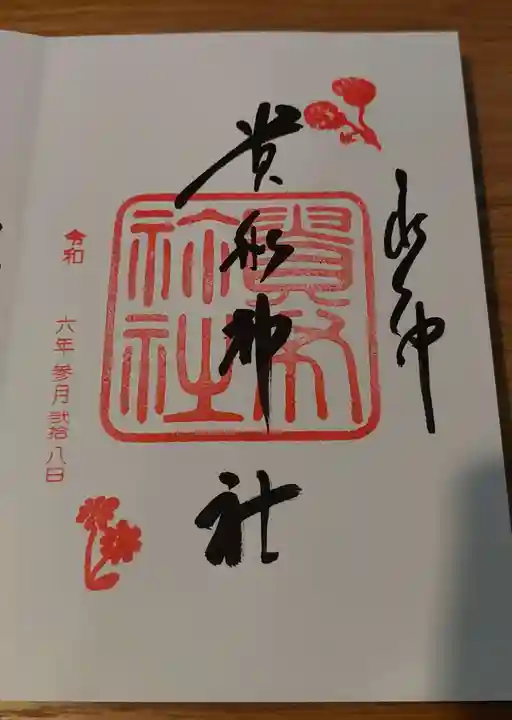 貴船神社
貴布
祢社
令和 六年 参月 弐拾八日